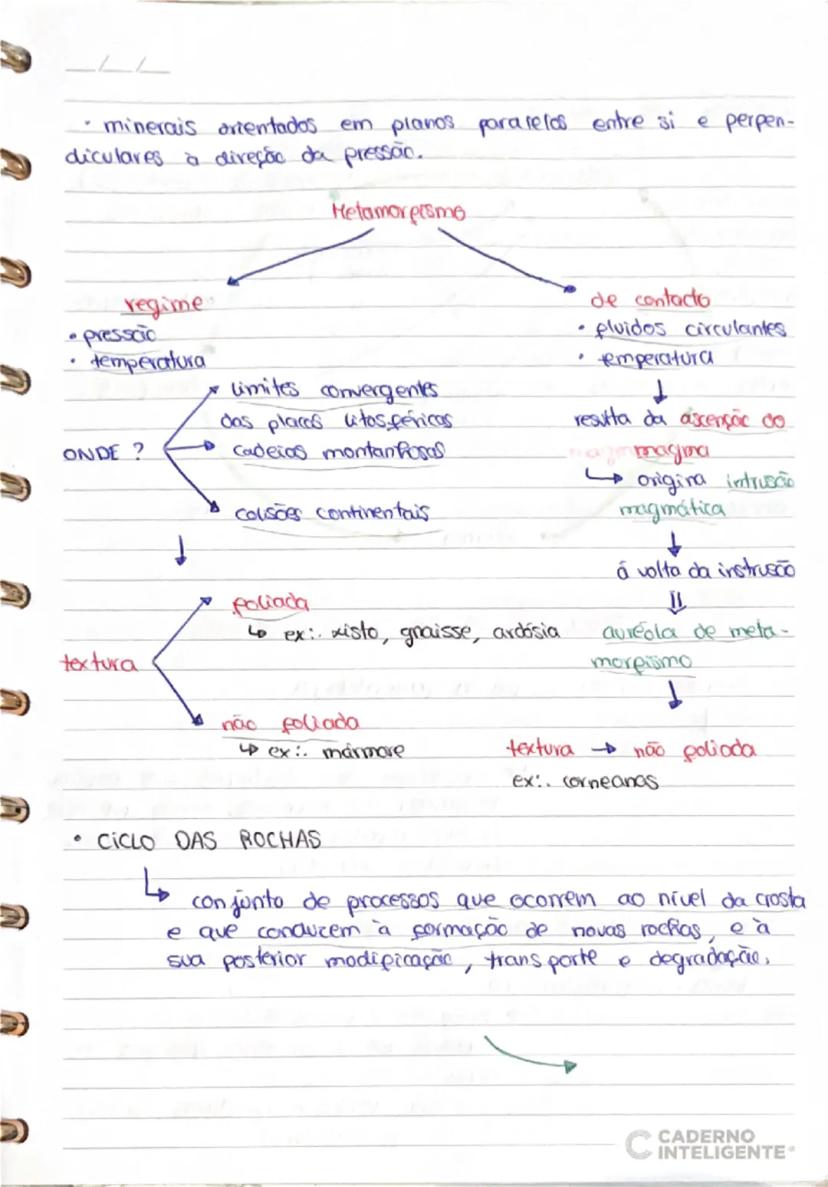 • minerais orientados em planos paralelos entre si e perpen-
diculares à direção da pressão.
Metamorfismo
regime
• pressão
• temperatura
ONDE ?
limites convergentes
das placas litosféricas
cadeias montanhosas
colisões continentais
textura
foliada
↳ ex:. xisto, gnaisse, ardósia
não foliada
↳ ex:. mármore
de contacto
• fluidos circulantes
• temperatura
resulta da ascenção do
magma
↳ origina intrusão
magmática
á volta da instrusão
auréola de meta-
morfismo
textura → não foliada
ex:. corneanas
• CICLO DAS ROCHAS
↳ conjunto de processos que ocorrem ao nível da crosta
e que conduzem à formação de novas rochas, e à
sua posterior modificação, transporte e degradação.
CADERNO
INTELIGENTE